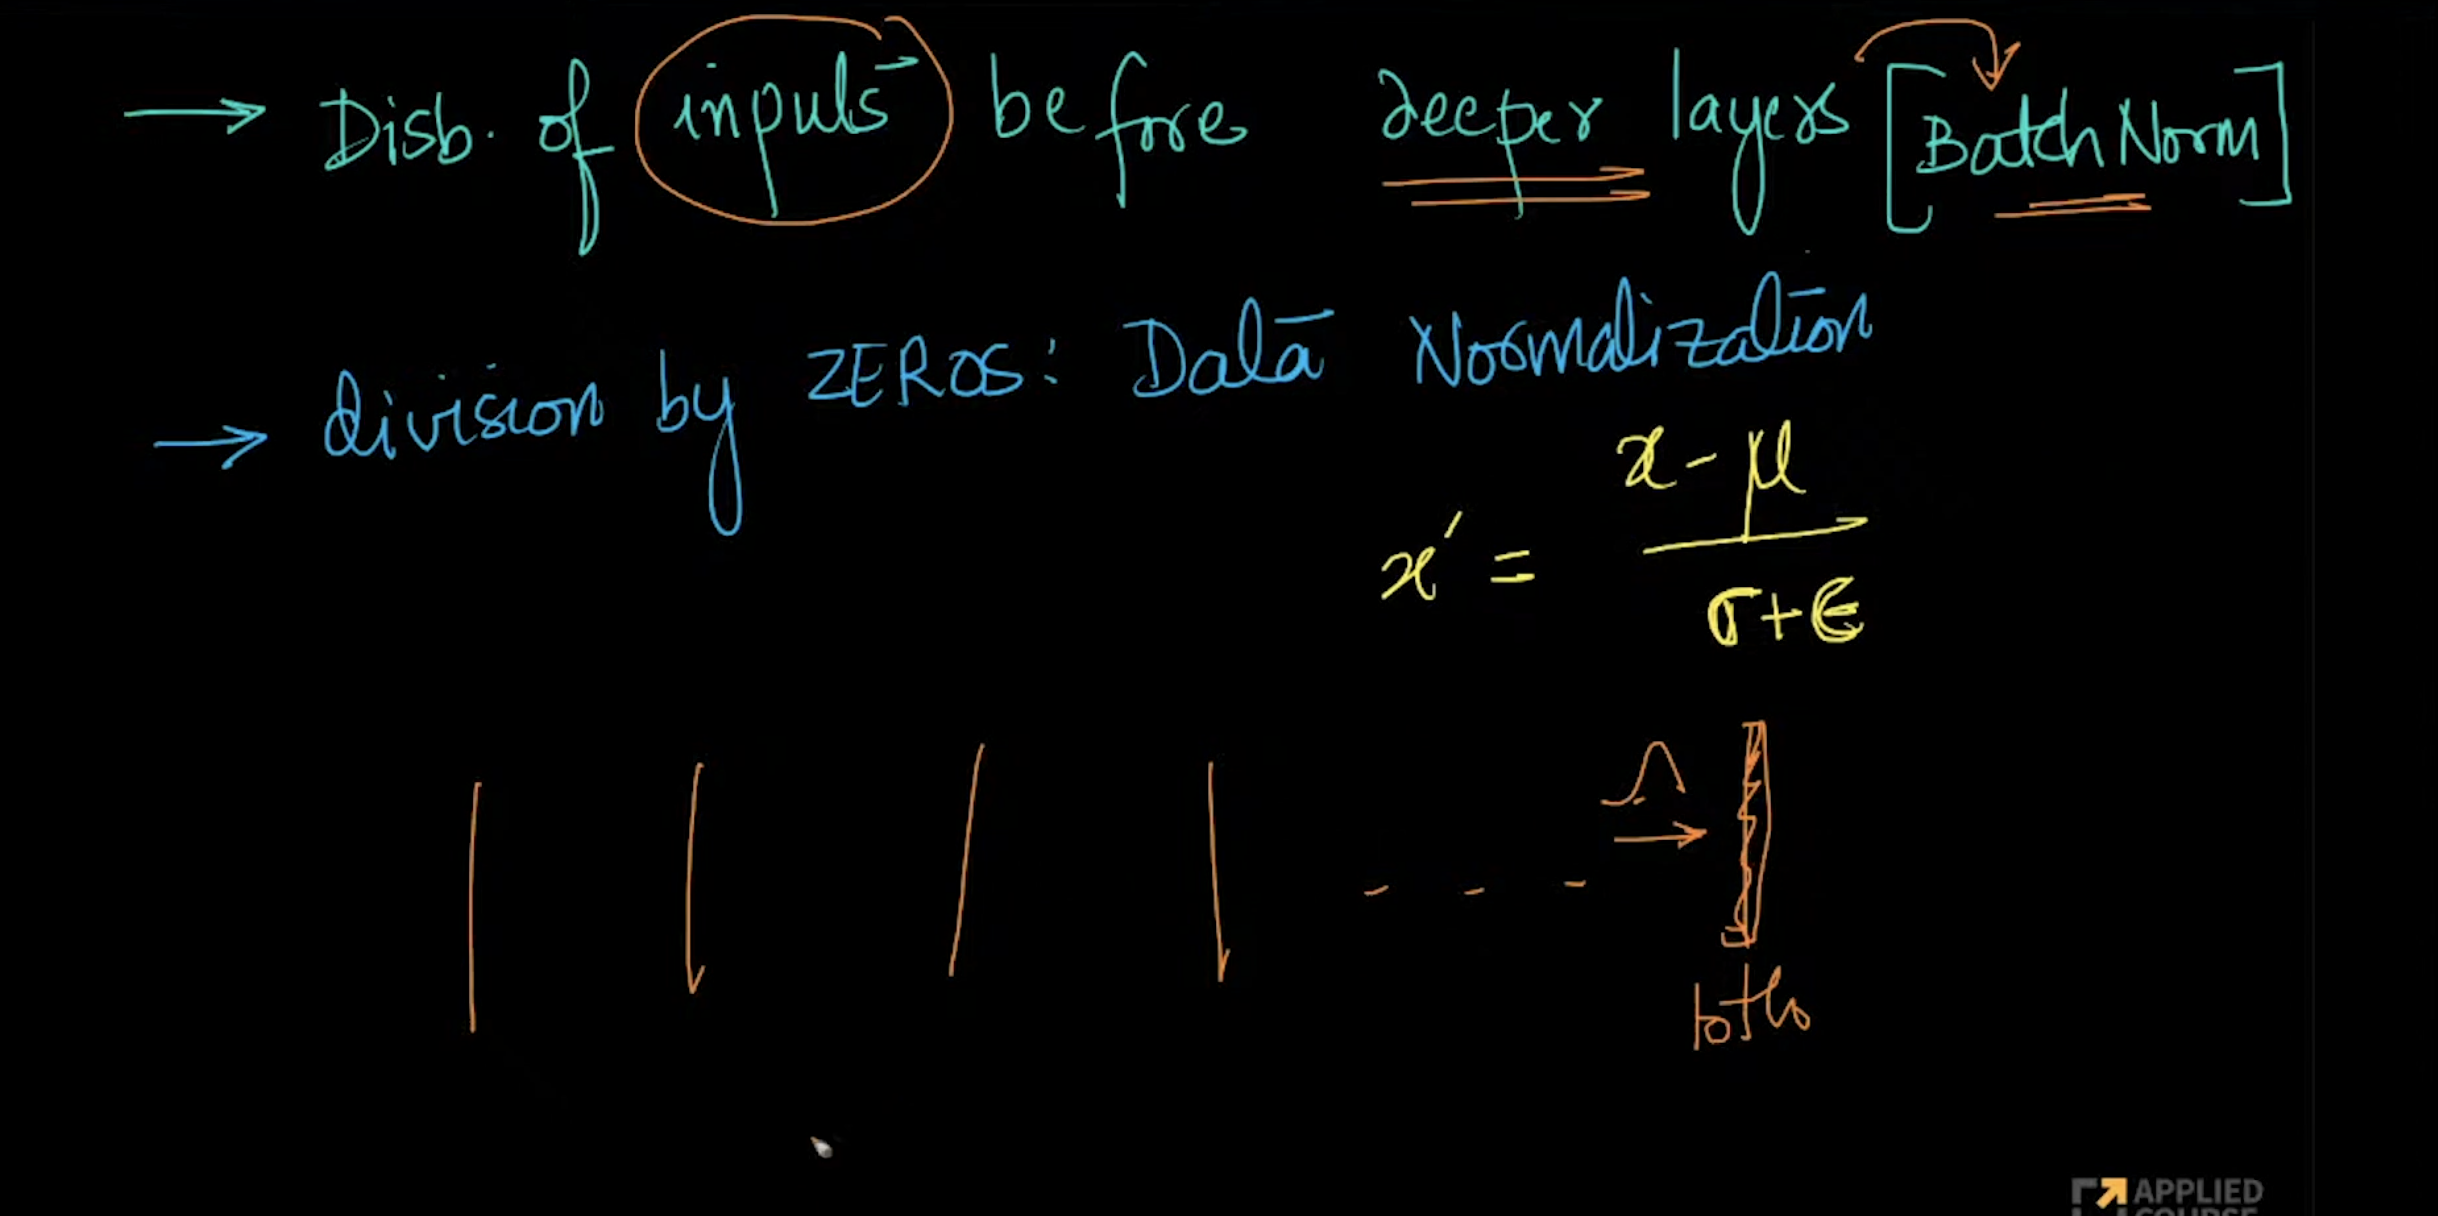 → Disb. of inputs before deeper layers [Batch Norm]
→ division by ZEROS: Data Normalization
x' = (x - μ) / (σ + ε)
10th
APPLIED
COURSE